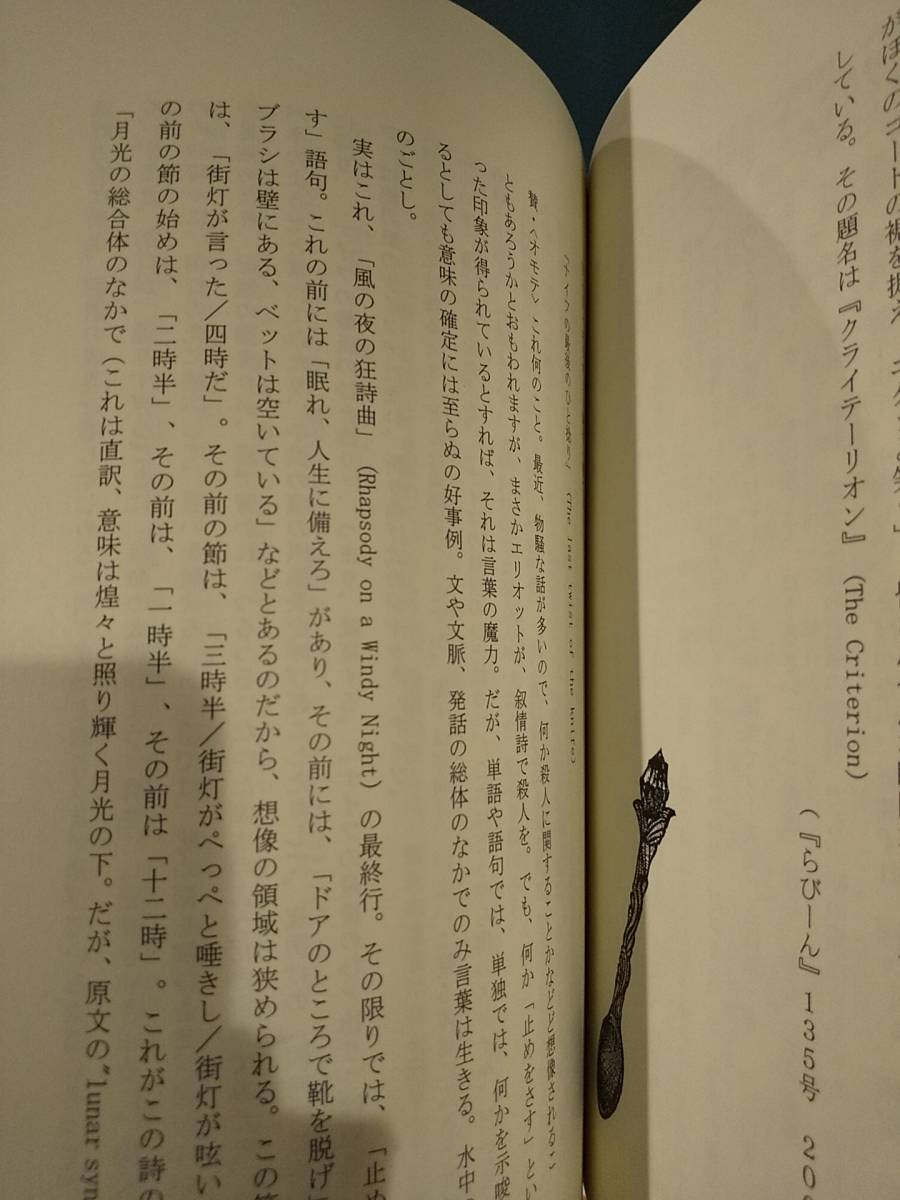 している。その題名は『クライテーリオン』（The Criterion）
（『らびーん』１３５号
ともあろうかとおもわれますが、まさかエリオットが、叙情詩で殺人を。でも、何か「止めをさす」とい
った印象が得られているとすれば、それは言葉の魔力。だが、単語や語句では、単独では、何かを示唆
るとしても意味の確定には至らぬの好事例。文や文脈、発話の総体のなかでのみ言葉は生きる。水中
のごとし。
実はこれ、「風の夜の狂詩曲」（Rhapsody on a Windy Night）の最終行。その限りでは、「止め
す」語句。これの前には「眠れ、人生に備えろ」があり、その前には、「ドアのところで靴を脱げ」
ブラシは壁にある、ベットは空いている」などとあるのだから、想像の領域は狭められる。この
は、「街灯が言った／四時だ」。その前の節は、「三時半／街灯がぺっぺと唾きし／街灯が呟い
の前の節の始めは、「二時半」、その前は、「一時半」、その前は「十二時」。これがこの詩の
「月光の総合体のなかで（これは直訳、意味は煌々と照り輝く月光の下。だが、原文の“lunar syn